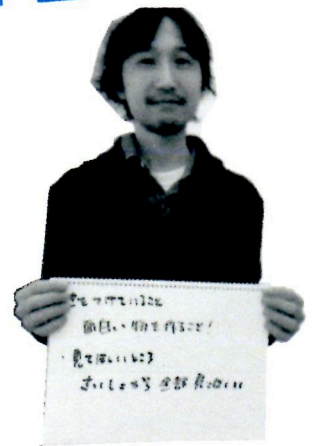 気をつけていること
面白い物を作ること!
・見てほしいところ
さいしょから全部見てほしい